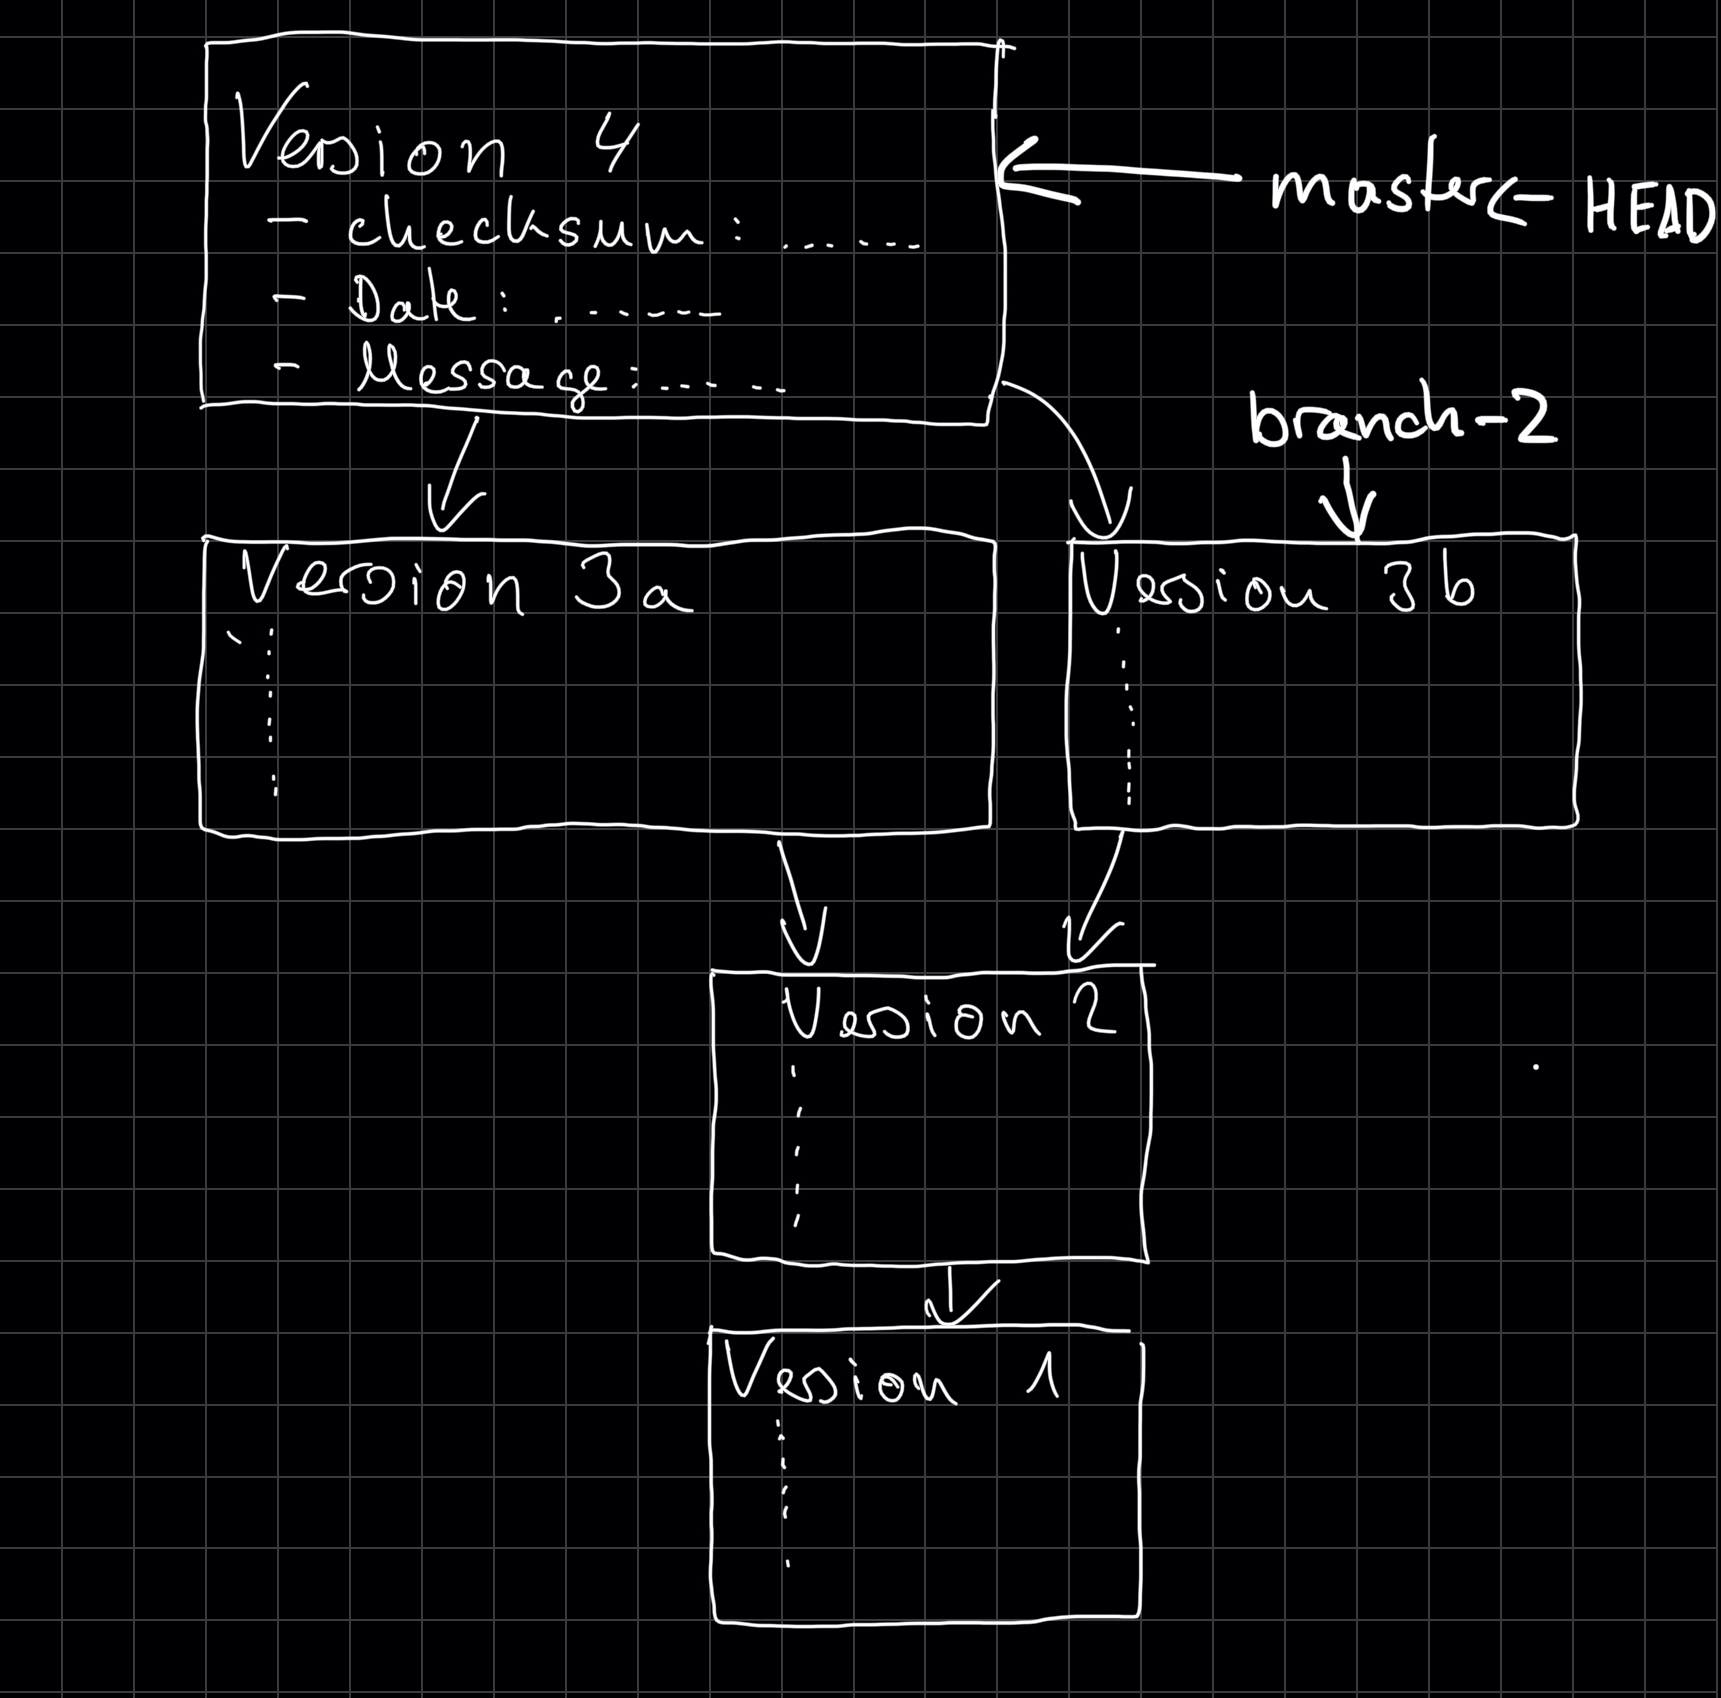 Version 4
- checksum: ......
master <- HEAD
- Date: ......
- Message: ......
branch-2
Version 3a
Version 3b
Version 2
Version 1